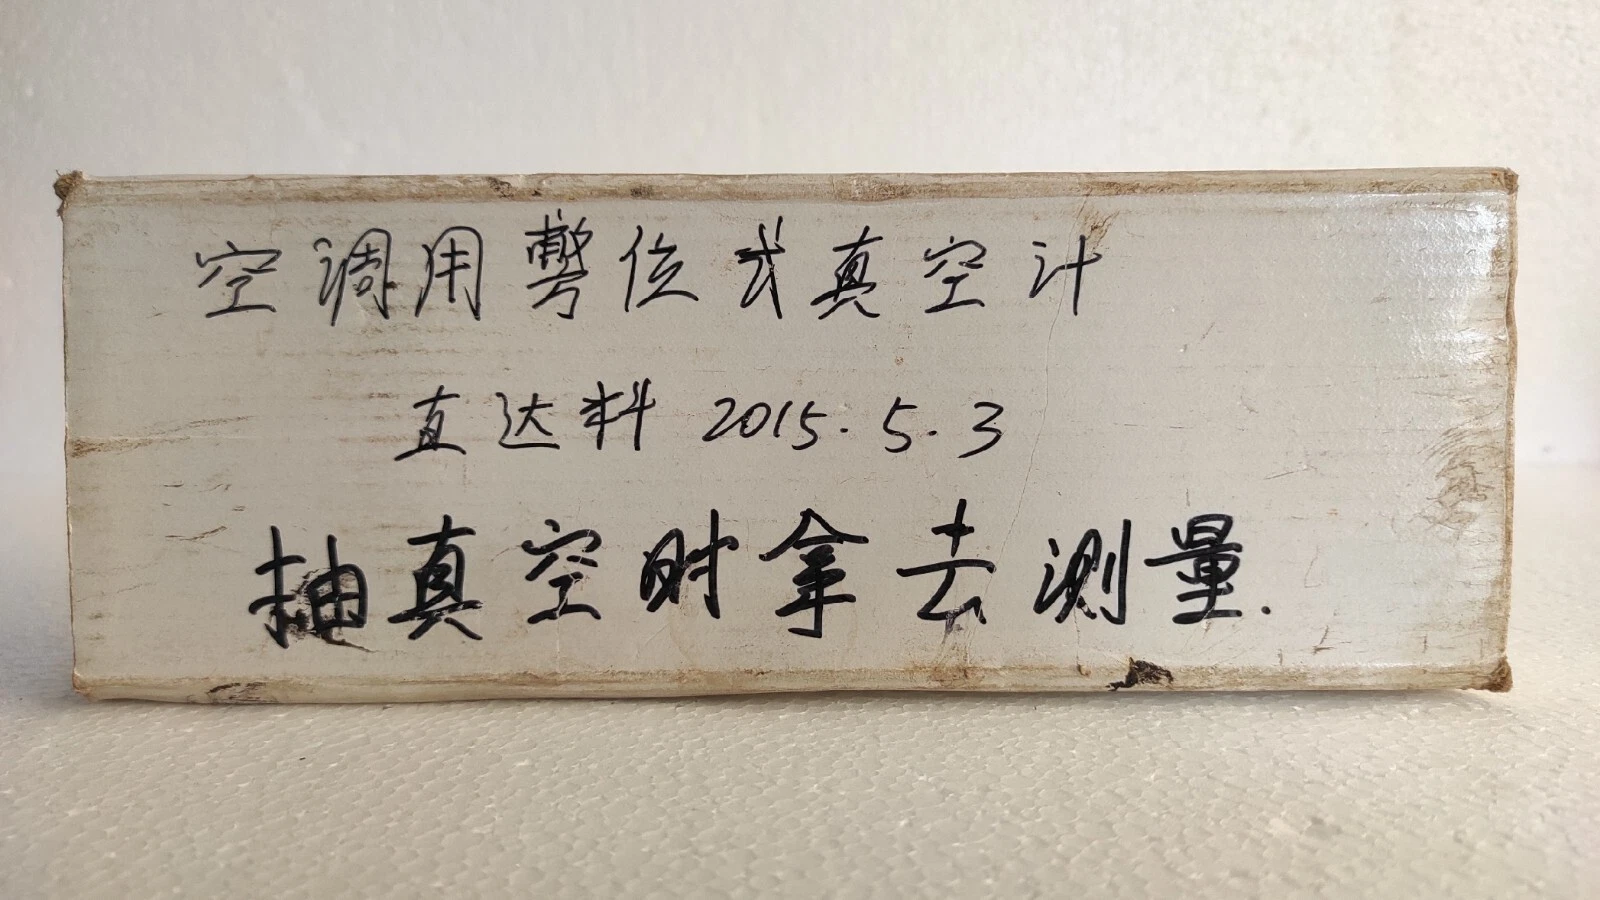 空调用位式真空计
直达料 2015.5.3
抽真空时拿去测量.